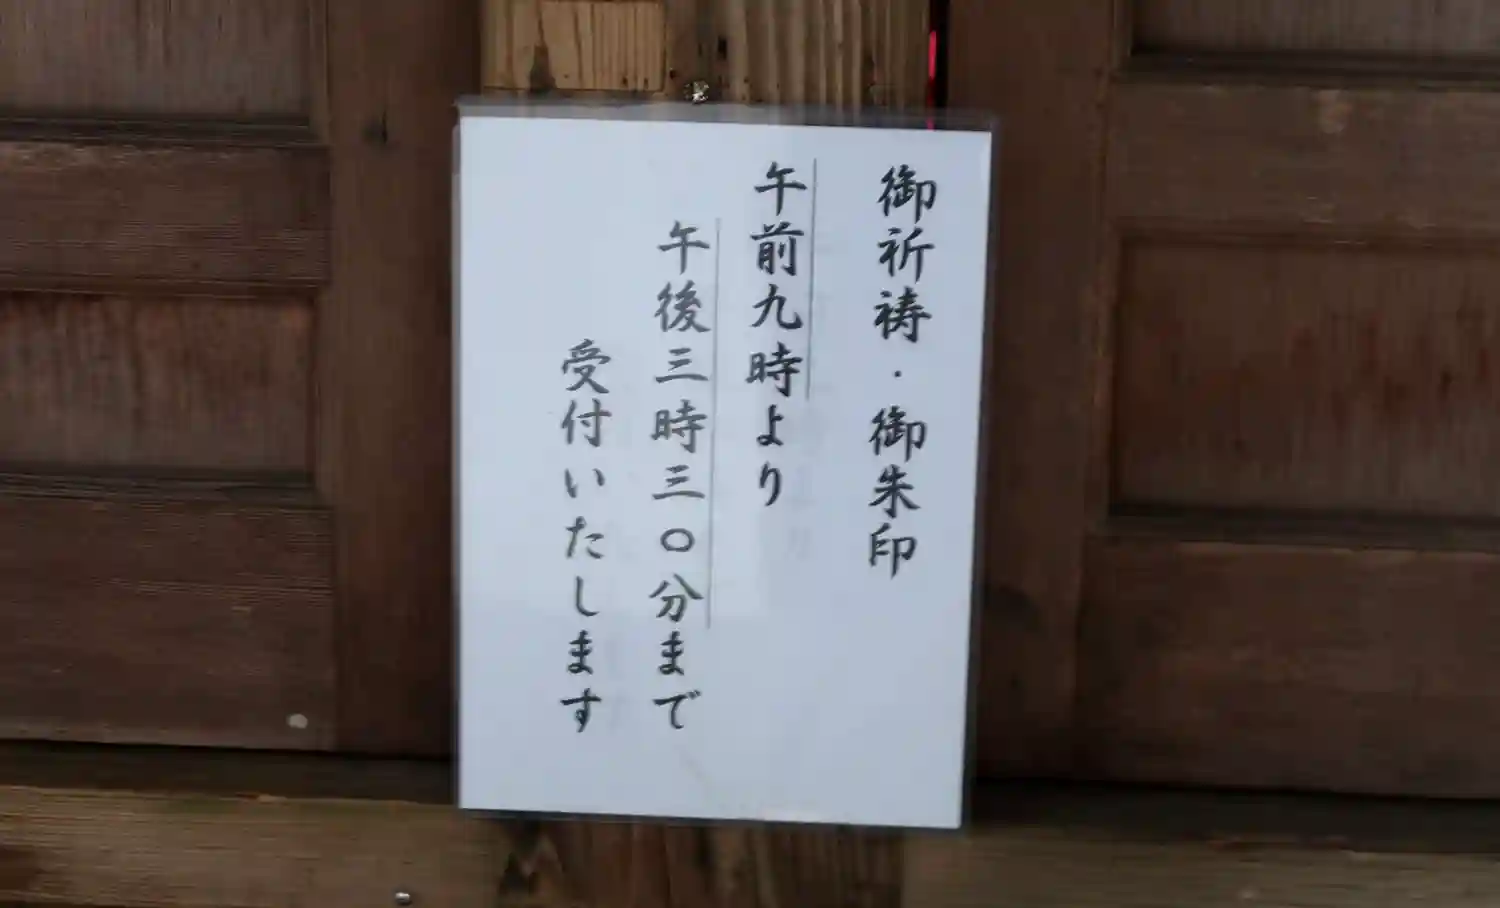 御祈祷・御朱印
午前九時より
午後三時三〇分まで
受付いたします